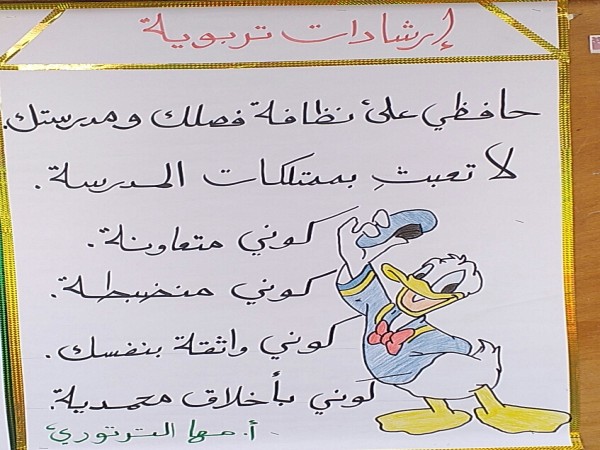 إرشادات تربوية
حافظي على نظافة فصلك ومدرستك.
لا تعبثِ بممتلكات المدرسة.
كوني متعاونة.
كوني منضبطة.
كوني واثقة بنفسك.
كوني بأخلاق محمدية.
أ. مها الترتوري